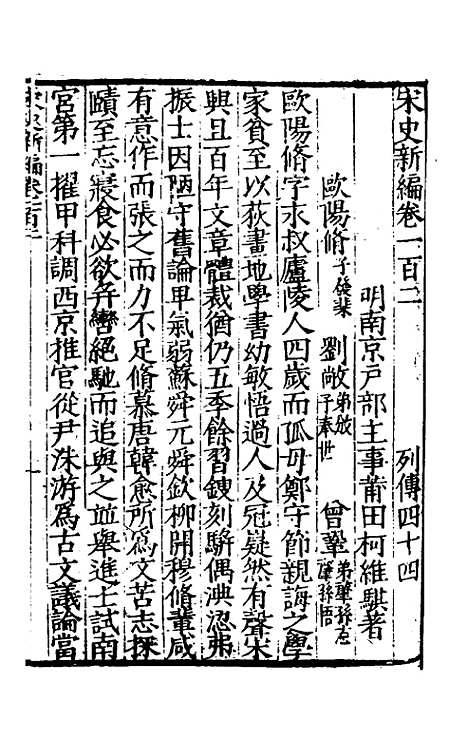 宋史新編卷一百二　列傳四十四
明南京戶部主事莆田柯維騏著
歐陽脩子發棐　劉敞弟攽子奉世　曾鞏弟肇
歐陽脩字永叔廬陵人四歲而孤母鄭守節親誨之學
家貧至以荻畫地學書幼敏悟過人及冠嶷然有聲宋
興且百年文章體裁猶仍五季餘習鎪刻駢偶淟涊弗
振士因陋守舊論卑氣弱蘇舜元舜欽柳開穆脩輩咸
有意作而張之而力不足脩慕唐韓愈所爲文苦志探
賾至忘寢食必欲幷轡絕馳而追與之並舉進士試南
宮第一擢甲科調西京推官從尹洙游爲古文議論當